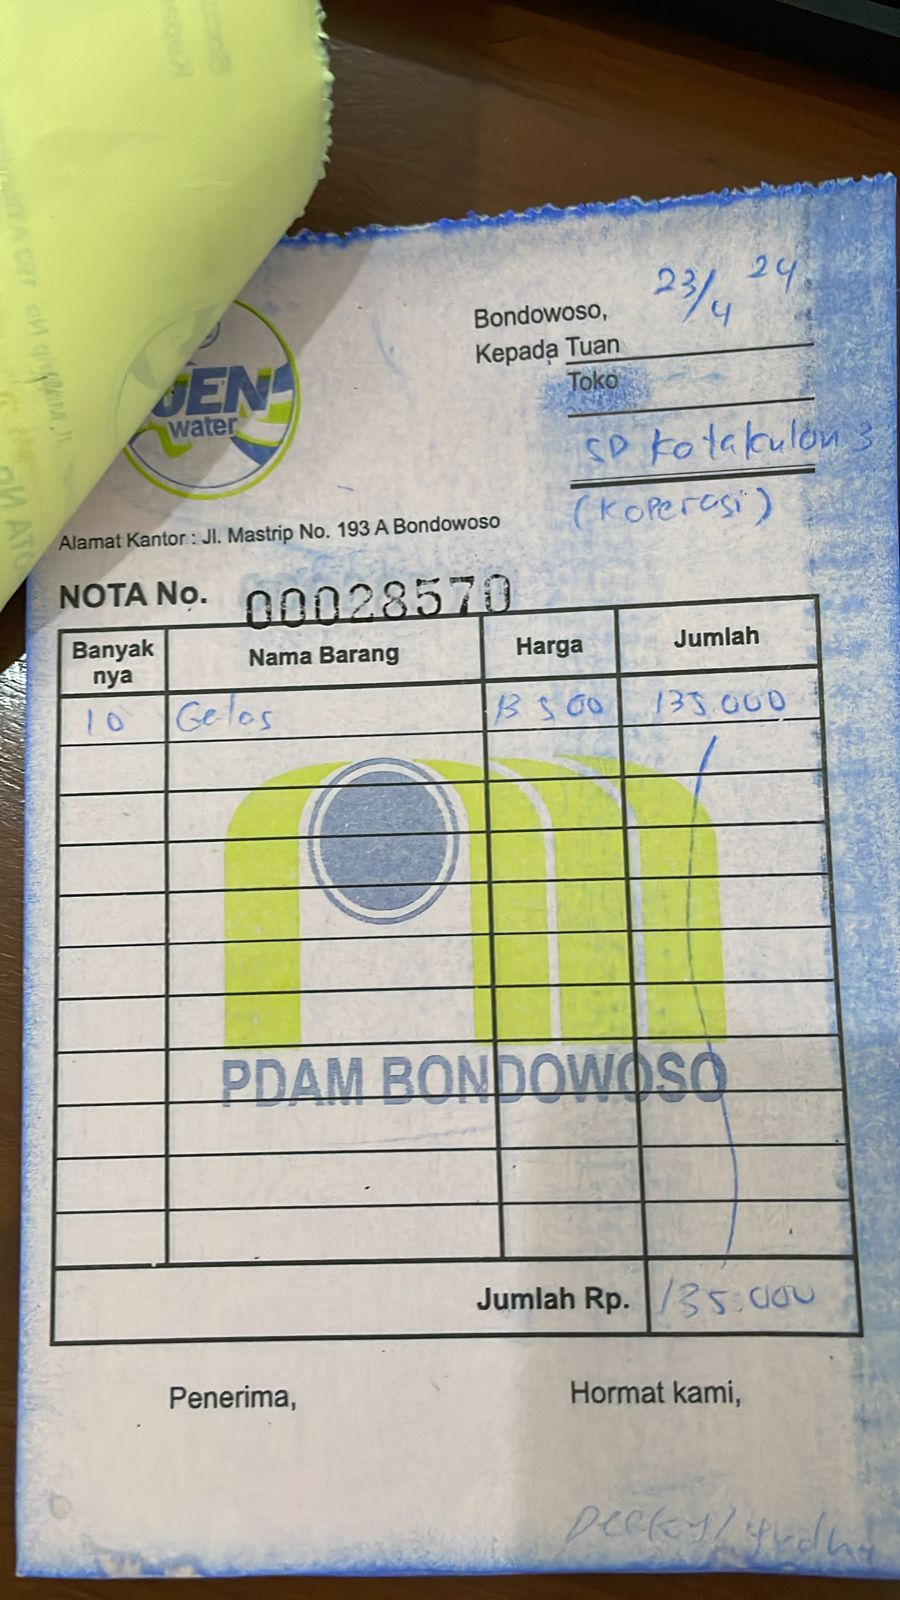 Bondowoso, 23/4 24
Kepada Tuan
Toko
SD Kotakulon 3
(Koperasi)
water
Alamat Kantor : Jl. Mastrip No. 193 A Bondowoso
NOTA No. 00028570
Banyak nya Nama Barang Harga Jumlah
10 Gelas 13 500 135.000
PDAM BONDOWOSO
Jumlah Rp. 135.000
Penerima, Hormat kami,